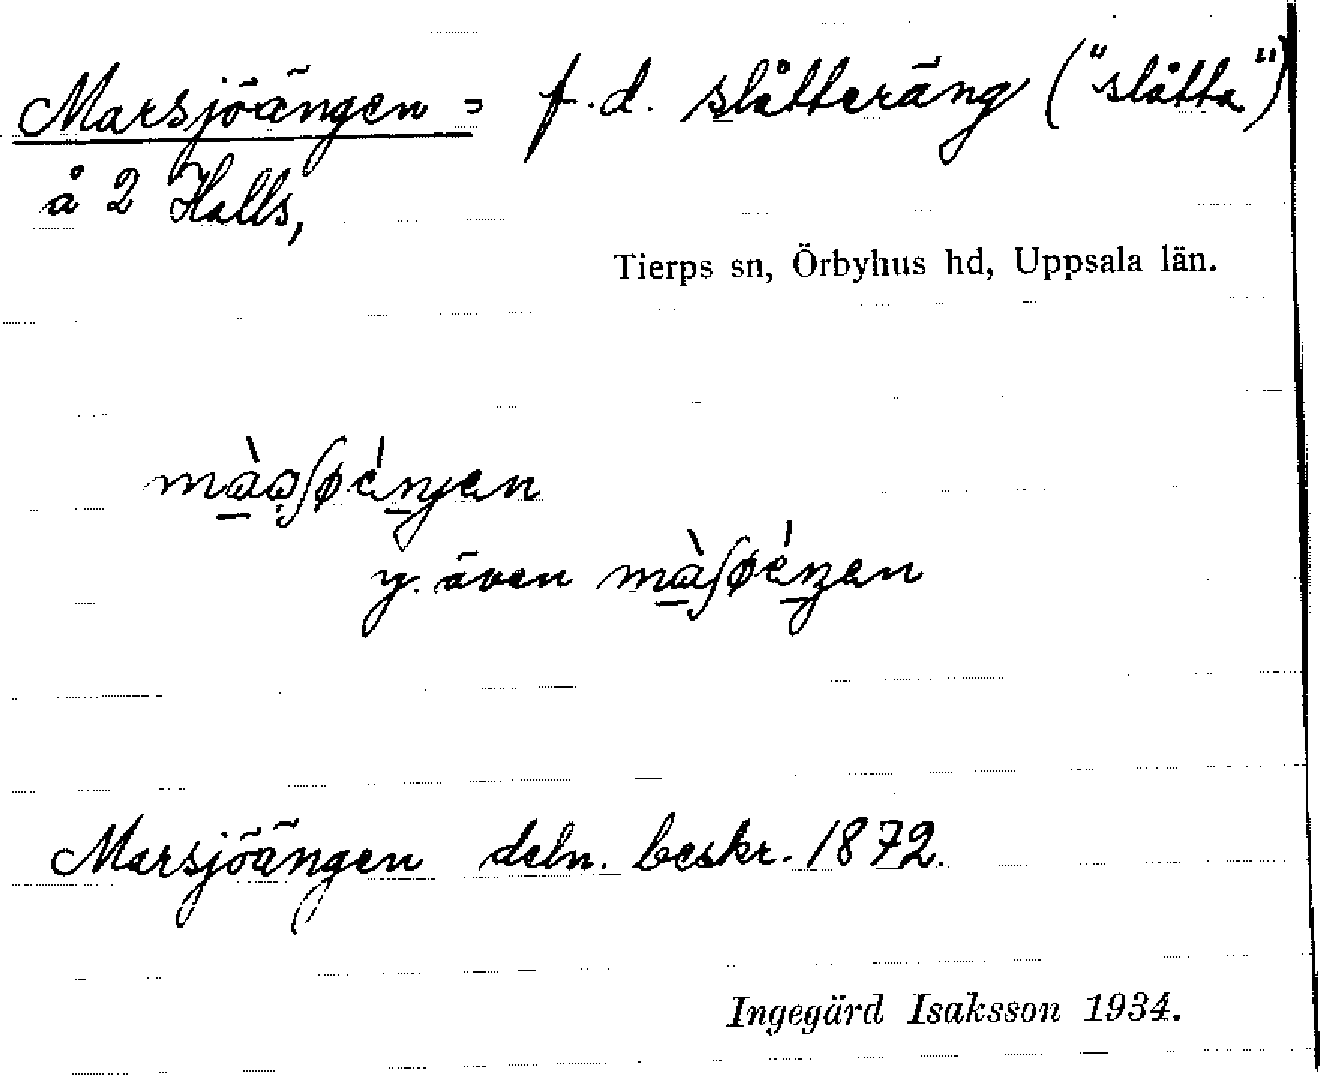 Marsjöängen = f.d. slåtteräng ("slåtta")
å 2 Halls,
Tierps sn, Örbyhus hd, Uppsala län.
y. även
Marsjöängen deln. beskr. 1872.
Ingegärd Isaksson 1934.